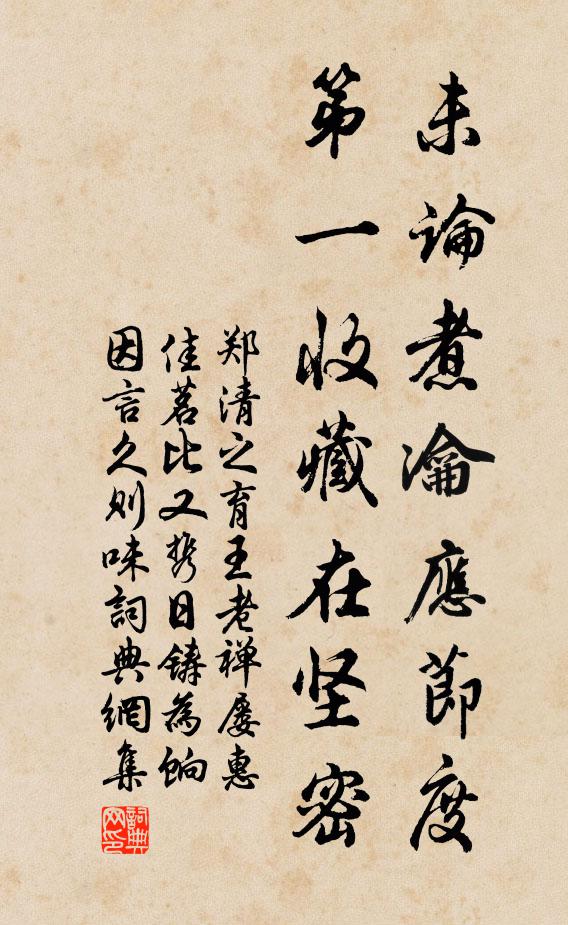 未論煮瀹應節度
第一收藏在坚密
郑清之育王老禅屡惠
佳茗比又携日铸為餉
因言久则味詞典網集
詞典网印